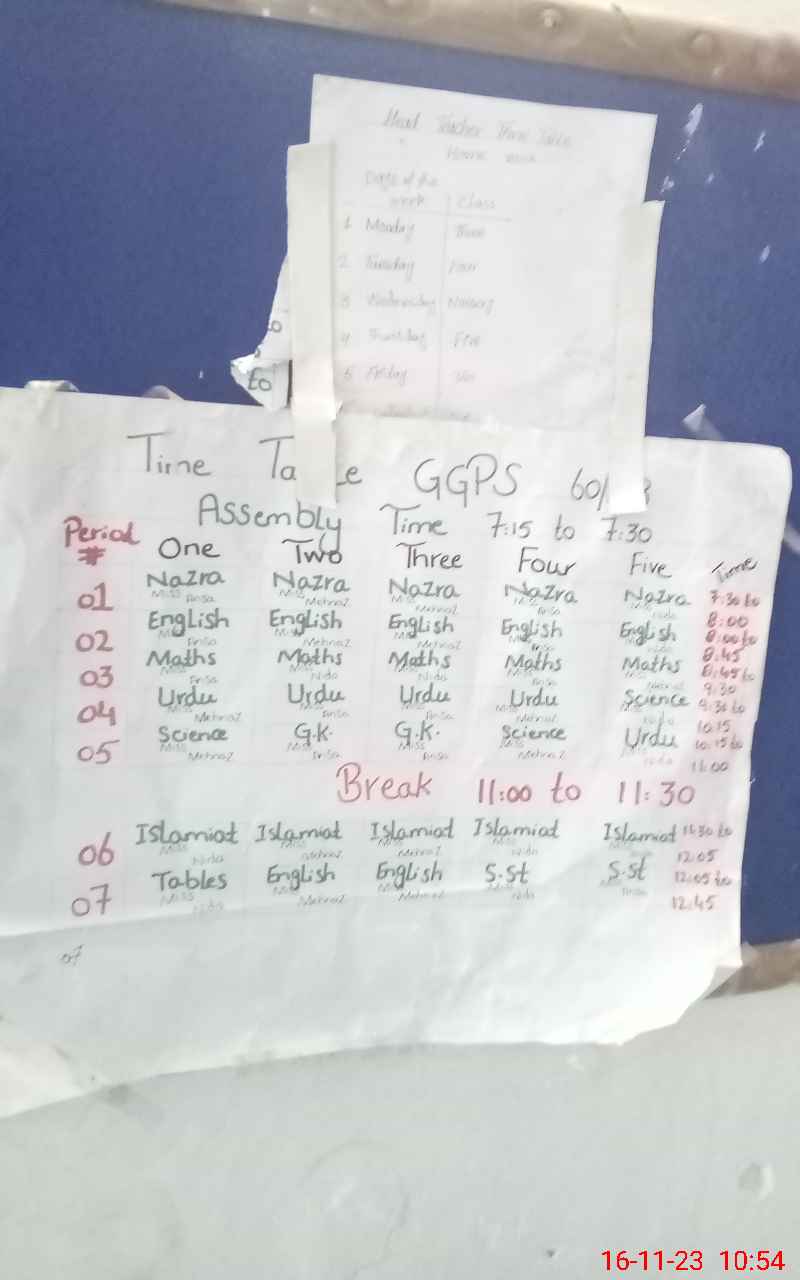 Head Teacher Time Table
Days of the
week Class
1 Monday Three
2 Tuesday Four
3 Wednesday Nursery
4 Five
5 Friday
to
Time Ta e GGPS 60/
Assembly Time 7:15 to 7:30
Period # One Two Three Four Five Time
01 Nazra Nazra Nazra Nazra Nazra 7:30 to
Miss Ansa Miss Mehnaz Miss Mehnaz Miss Ansa Miss 8:00
02 English English English English English 8:00 to
Miss Ansa Miss Mehnaz Miss Mehnaz Miss Ansa Miss Nida 8:45
03 Maths Maths Maths Maths Maths 8:45 to
Miss Ansa Miss Nida Miss Nida Miss Miss Mehnaz 9:30
04 Urdu Urdu Urdu Urdu Science 9:30 to
Miss Mehnaz Miss Ansa Miss Ansa Miss Mehnaz Miss Nida 10:15
05 Science G.K. G.K. Science Urdu 10:15 to
Miss Mehnaz Miss Ansa Miss Ansa Miss Mehnaz Miss Nida 11:00
Break 11:00 to 11:30
06 Islamiat Islamiat Islamiat Islamiat Islamiat 11:30 to
Miss Nida Miss Mehnaz Miss Mehnaz Miss Nida Miss 12:05
07 Tables English English S.st S.st 12:05 to
Miss Nida Miss Mehnaz Miss Mehnaz Miss Nida Miss Ansa 12:45
07
16-11-23 10:54